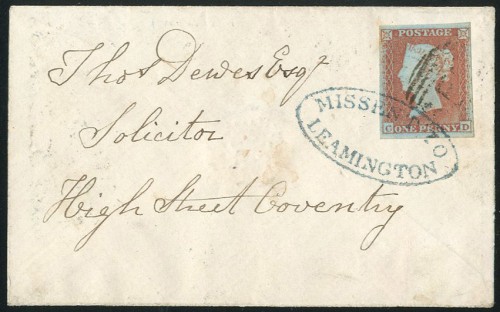 Thos Dewes Esqr
Solicitor
High Street Coventry
POSTAGE
ONE PENNY
G D
MISSENT TO
LEAMINGTON